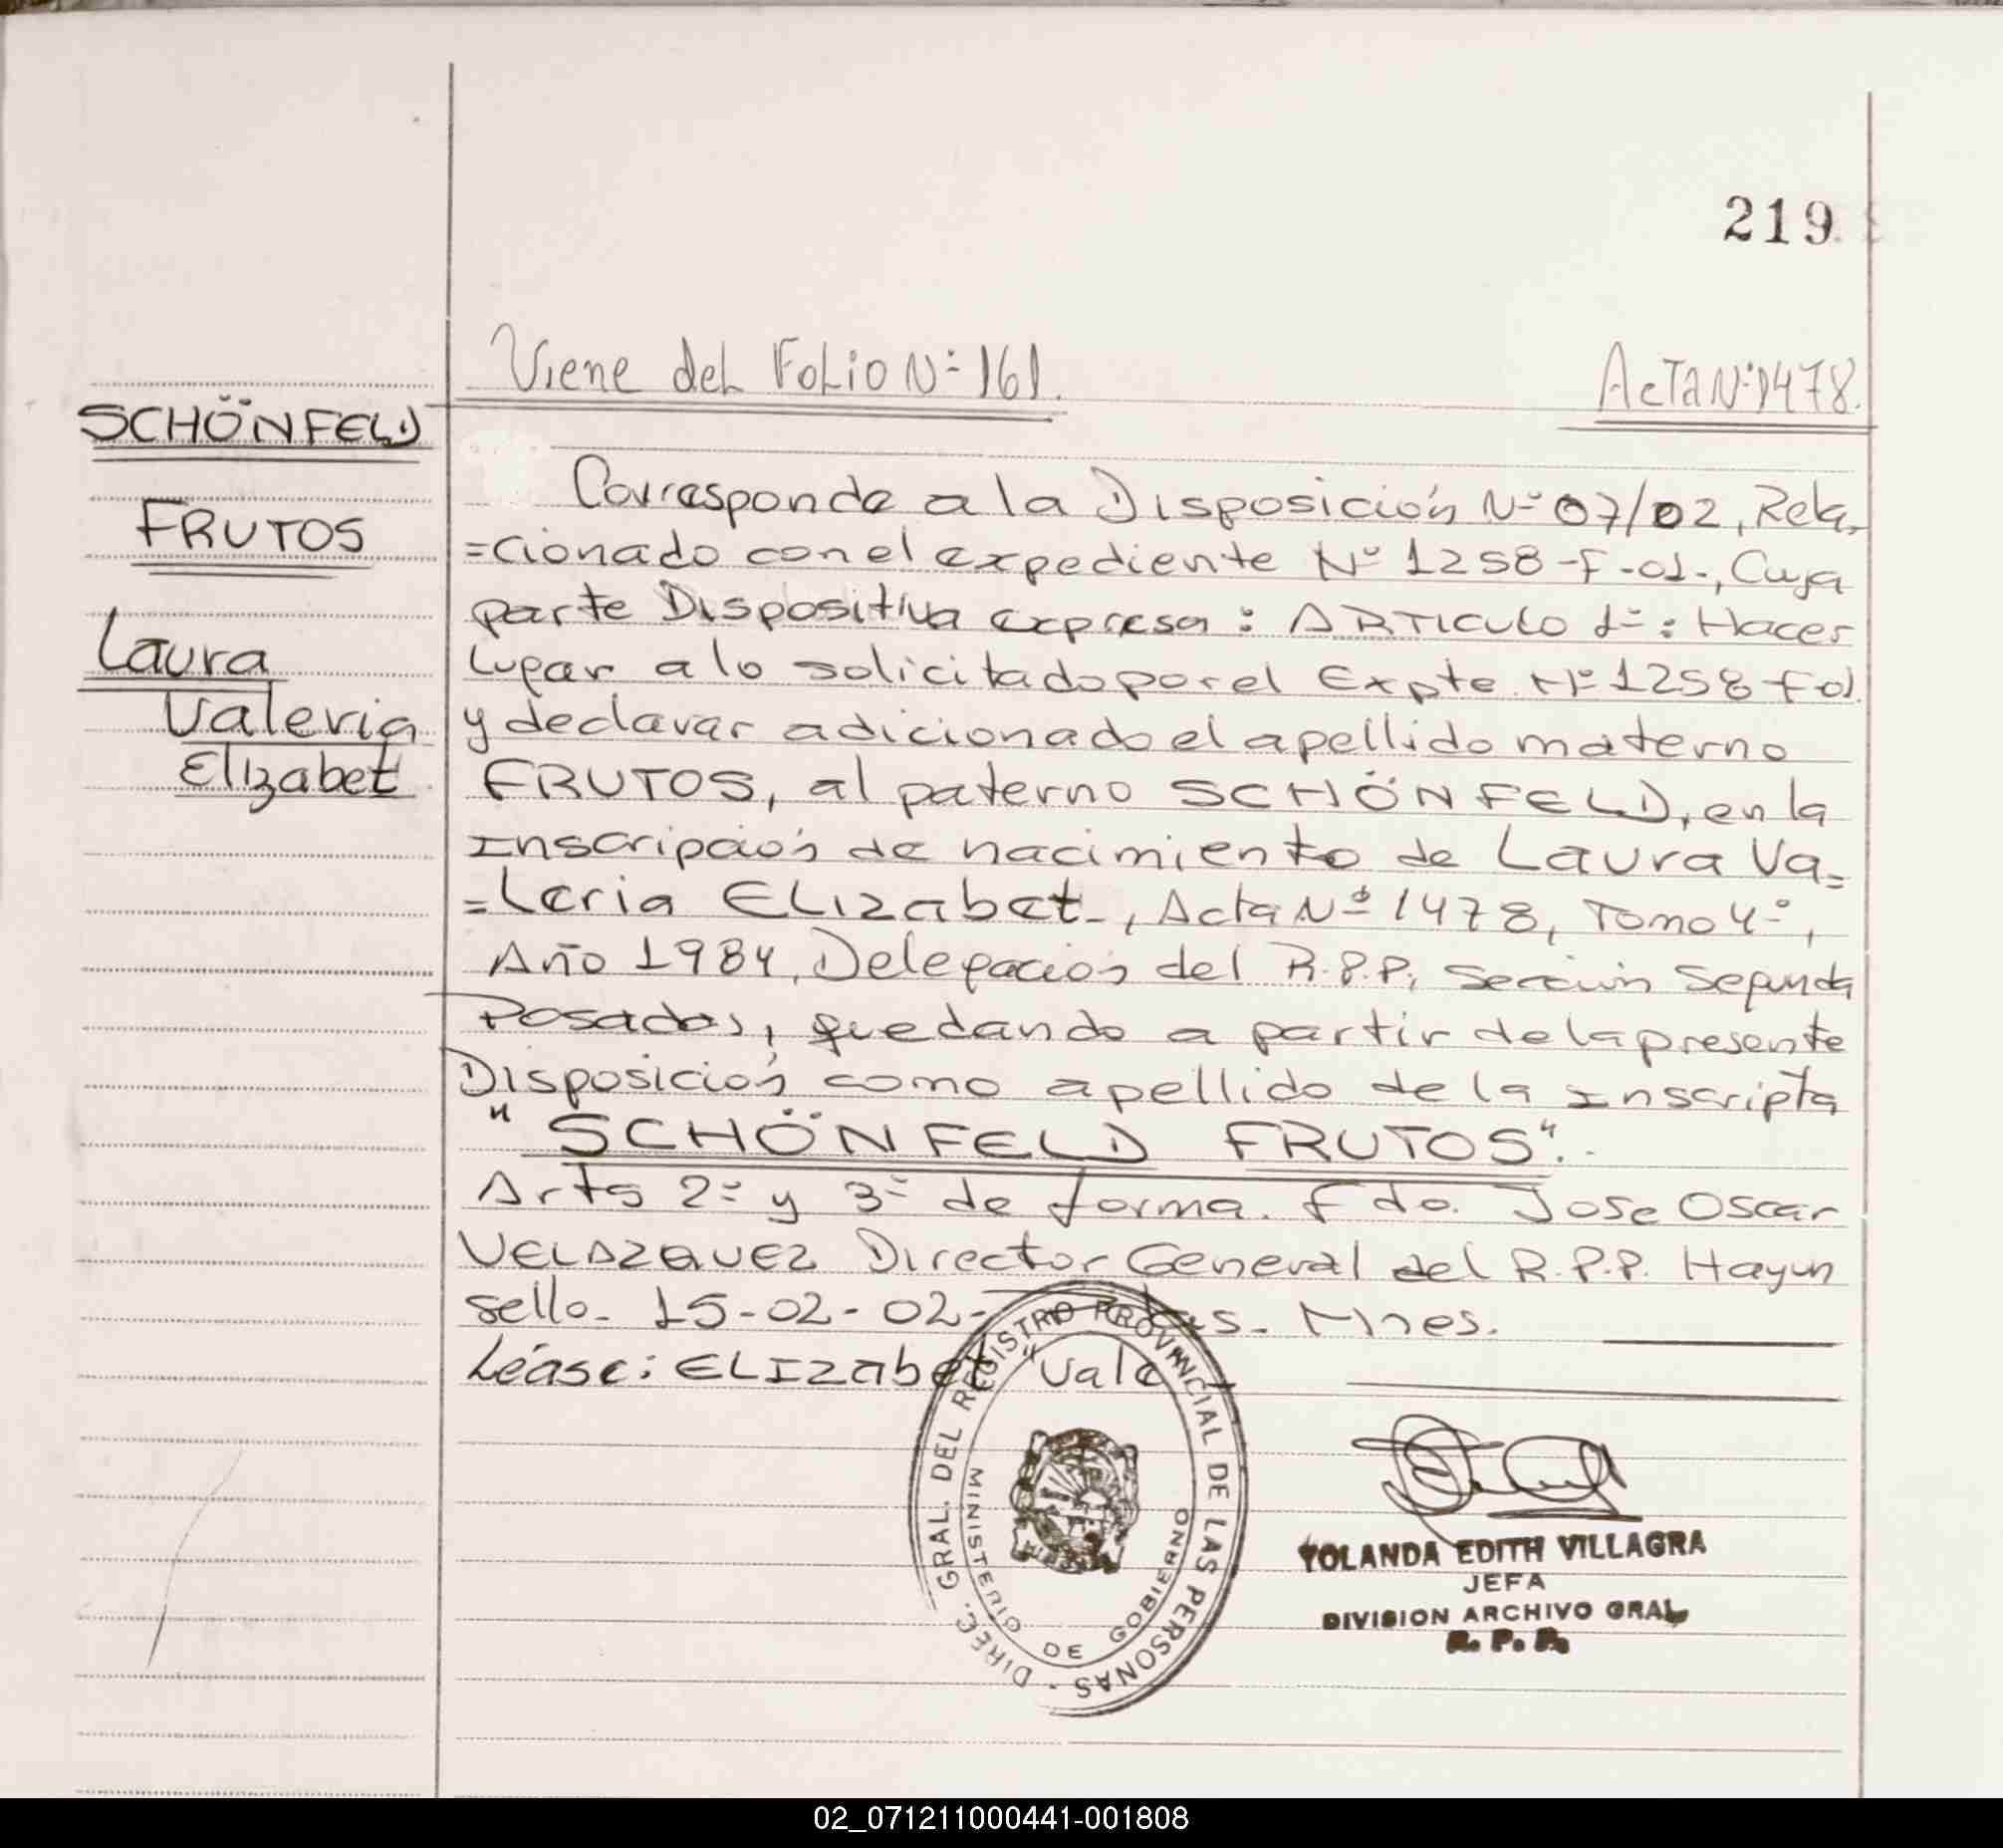 219
Viene del Folio Nº 161.
Acta Nº 1478.
SCHÖNFELD
FRUTOS
Laura
Valeria
Elizabet
Corresponde a la Disposición Nº 07/02, Rela-
=cionado con el expediente Nº 1258-F-01-, Cuya
parte Dispositiva expresa: ARTICULO 1º: Hacer
lugar a lo solicitado por el Expte. Nº 1258 F 01
y declarar adicionado el apellido materno
FRUTOS, al paterno SCHÖNFELD, en la
Inscripción de nacimiento de Laura Va=
=leria ELIZabet-, Acta Nº 1478, Tomo 4º,
Año 1984, Delegación del R.P.P, Sección Segunda
Posadas, quedando a partir de la presente
Disposición como apellido de la Inscripta
"SCHÖNFELD FRUTOS".
Arts 2º y 3º de forma. Fdo. Jose Oscar
VELAZQUEZ Director General del R.P.P. Hay un
sello. 15-02-02- Mnes.
Léase: ELIZabet "Vale
DIREC. GRAL. DEL REGISTRO PROVINCIAL DE LAS PERSONAS -
MINISTERIO DE GOBIERNO
YOLANDA EDITH VILLAGRA
JEFA
DIVISION ARCHIVO GRAL
R. P. P.
02_071211000441-001808